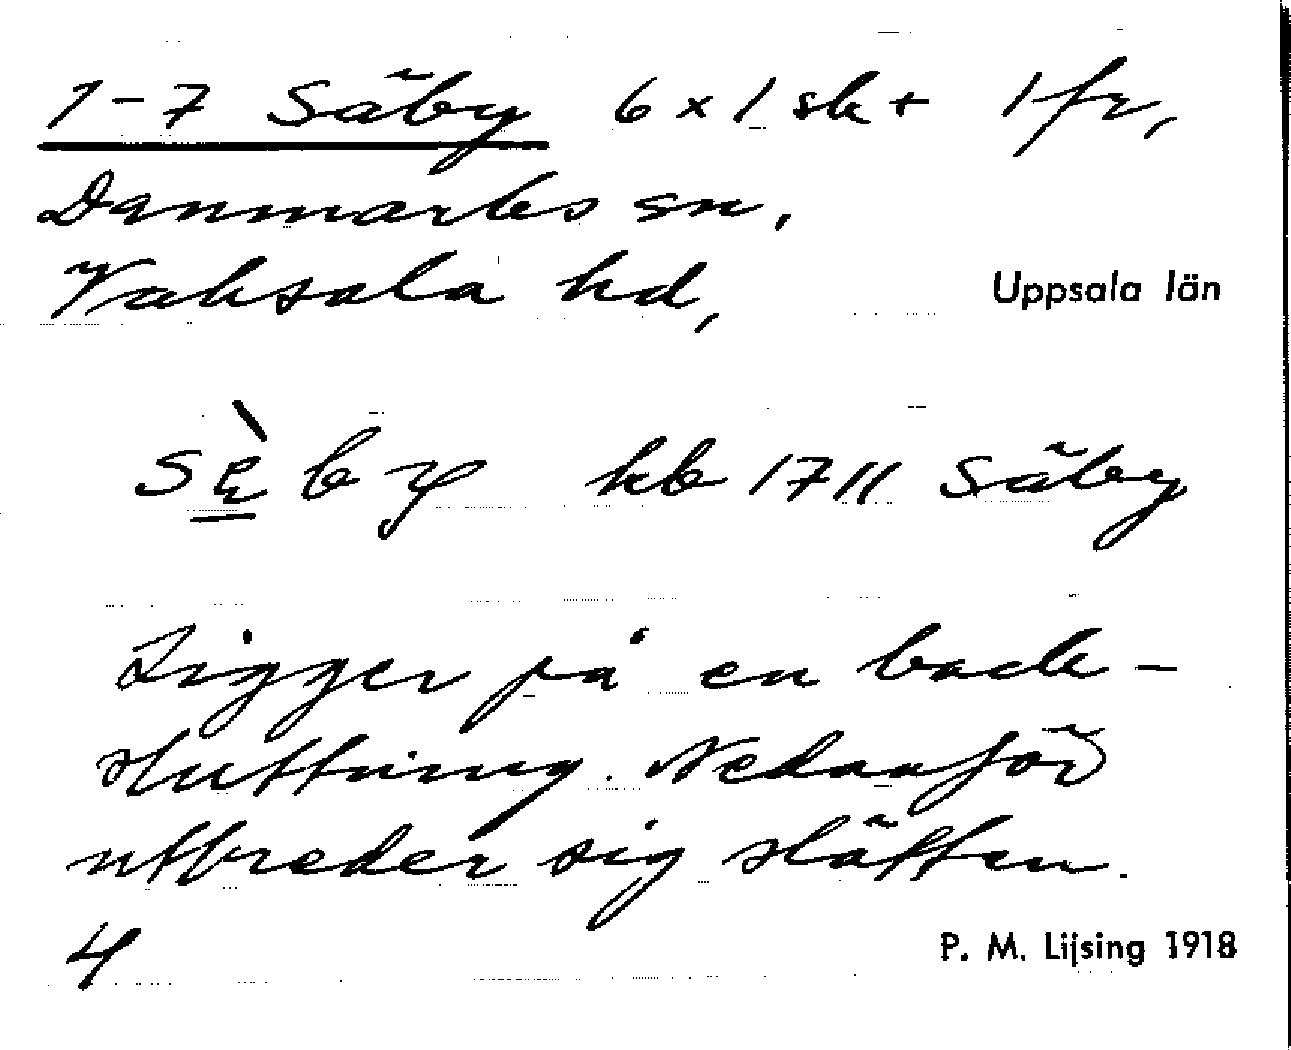 1-7 Säby 6 x 1 sk + 1 fr,
Danmarks sn.
Vaksala hd, Uppsala län
sè̱by kb 1711 Säby
Ligger på en back-
sluttning. Nedanför
utbreder sig slätten.
4 P. M. Lijsing 1918